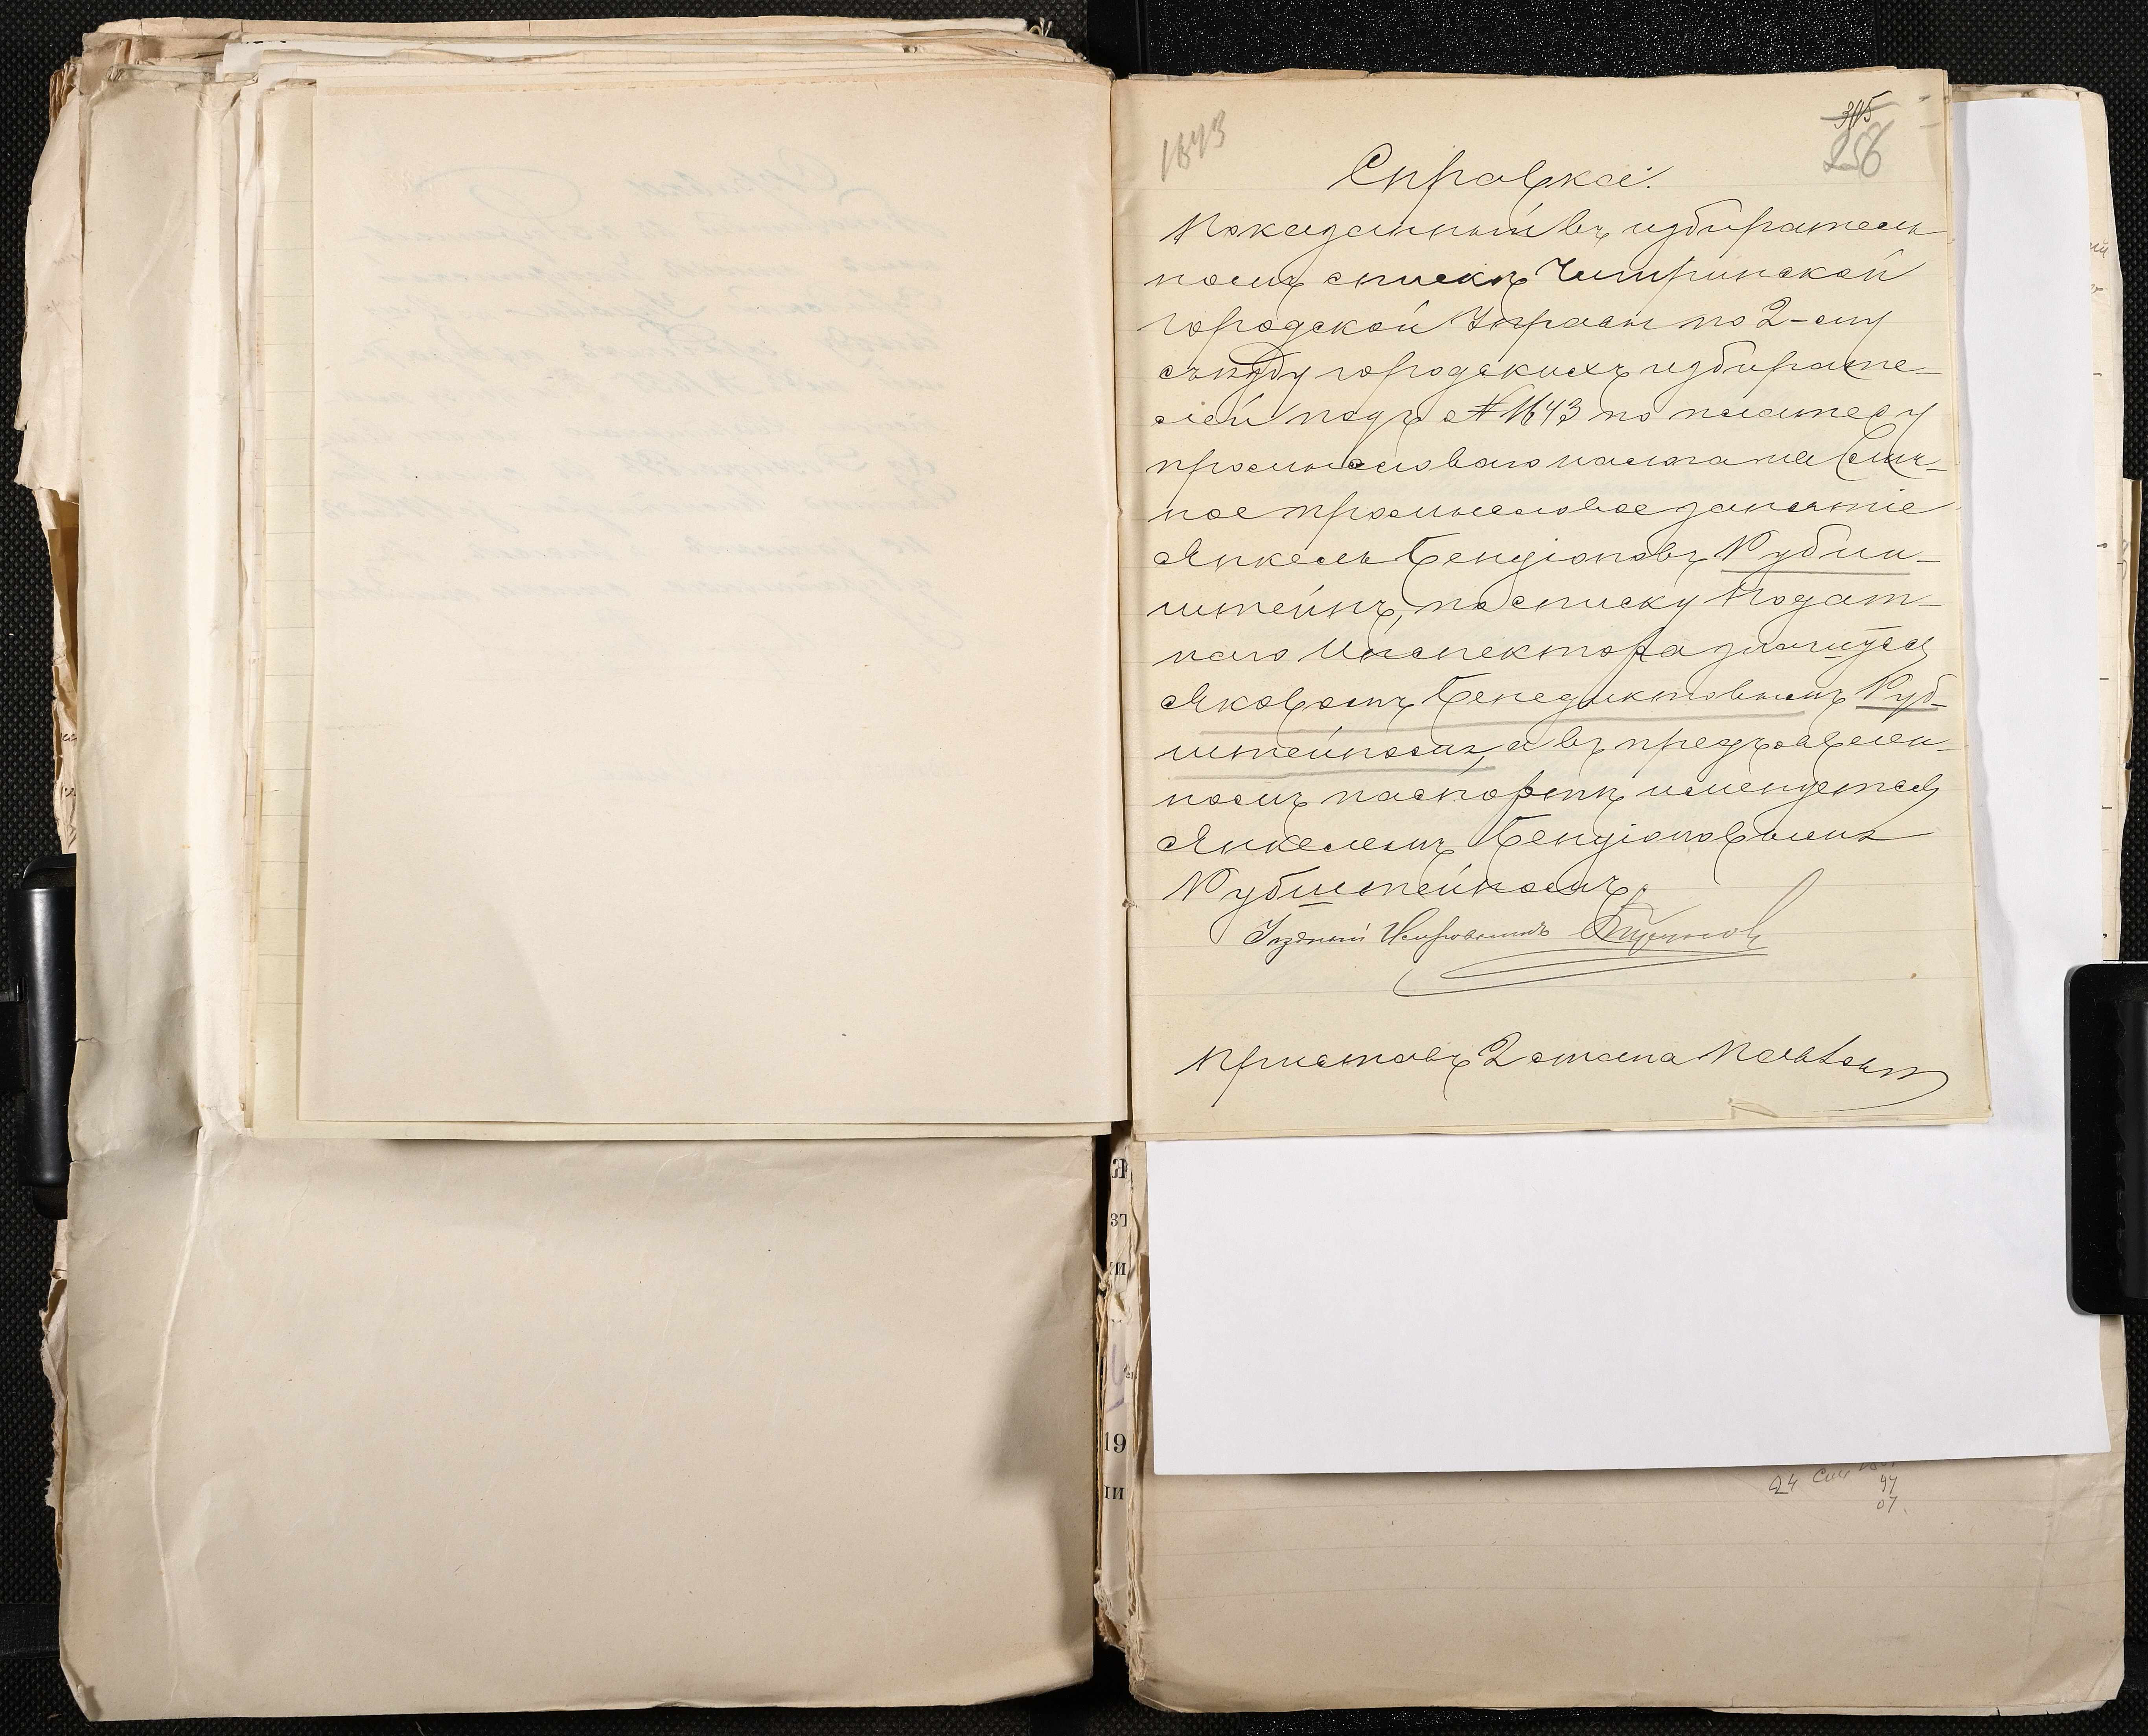 1643
315
256
Справка.
Показанный въ избиратель
номъ спискѣ Читинской
городской Управы по 2-му
съѣзду городскихъ избирате-
лей подъ № 1643 по платежу
промысловаго налога на лич-
ное промысловое занятіе
Янкель Бенціоновъ Рубин-
штейнъ, по списку Подат-
наго Инспектора значится
Яковомъ Бенедиктовымъ Руб-
штейномъ, а въ предъявлен-
номъ паспортѣ именуется
Янкелемъ Бенціоновымъ
Рубштейномъ.
Уѣздный Исправникъ
Приставъ 2 стана